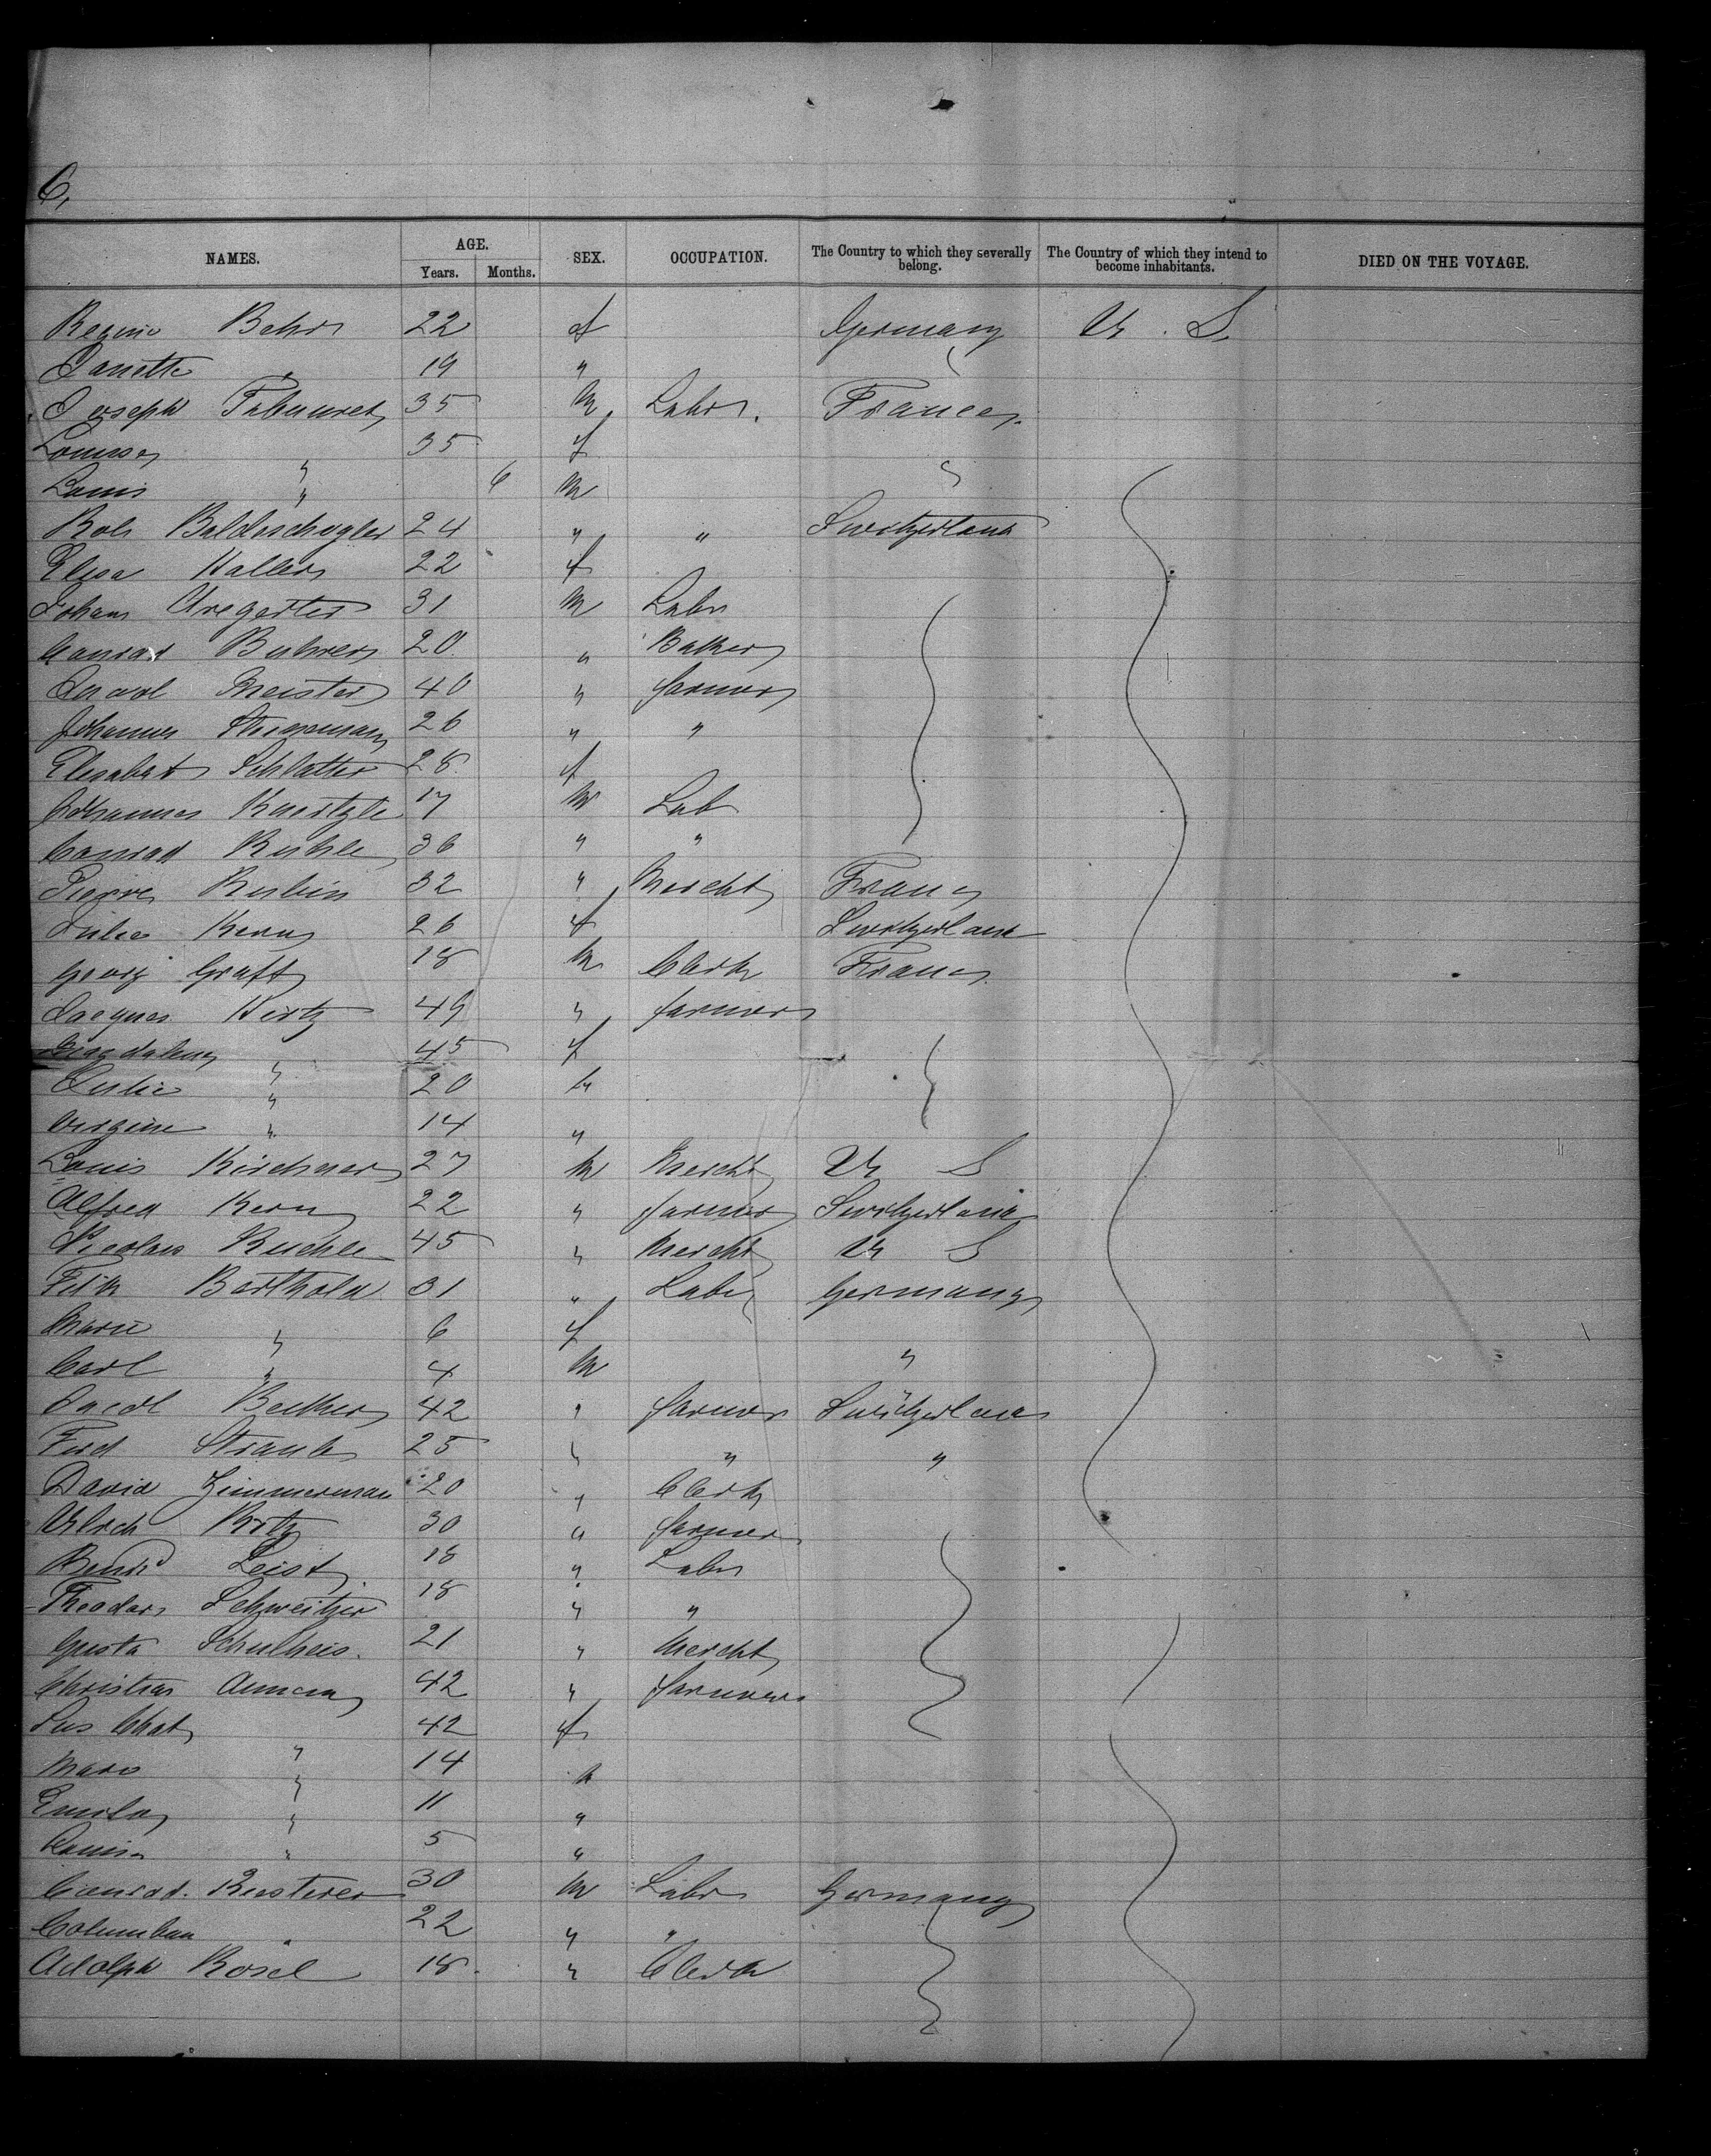 6,
NAMES. AGE. SEX. OCCUPATION. The Country to which they severally belong. The Country of which they intend to become inhabitants. DIED ON THE VOYAGE.
Years. Months.
Regine Behr 22 f Germany U. S.
Janette " 19 "
Joseph 35 M Labr. France
Louise " 35 f
Louis " 6 M "
Rob 24 " " Switzerland
Elisa Haller 22 f
Johann 31 M Labr
Conrad Buhrer 20 " Baker
Meister 40 " farmer
Johannes 26 " "
Elisabet Schlatter 28 f
Johannes 17 M Lab
Conrad Ruhle 36 " "
Pierre Rubin 32 " Mercht France
Julie Kern 26 f Switzerland
Georg Graff 18 M Clerk France
Jacques Hirtz 49 " farmer
Magdalena " 45 f
Julie " 20 "
Virgine " 14 "
Louis Kirchner 27 M Mercht U S
Alfred Kern 22 " farmer Switzerland
Nicolaus Ruchle 45 " Mercht U S
Barthold 31 " Labr Germany
Marie " 6 f
Carl " 4 M "
Becker 42 " farmer Switzerland
Ferd Straub 25 " " "
David Zimmerman 20 " Clerk
Ulrich 30 " farmer
Leist 18 " Labr
Theodor Schweitzer 18 " "
Gusta Schulheis. 21 " Mercht
Christian 42 " farmer
42 f
" 14 "
" 11 "
Louisa " 5 "
Conrad. Riesterer 30 M Labr Germany
Columban " 22 " "
Adolph Rosel 18. " Clerk